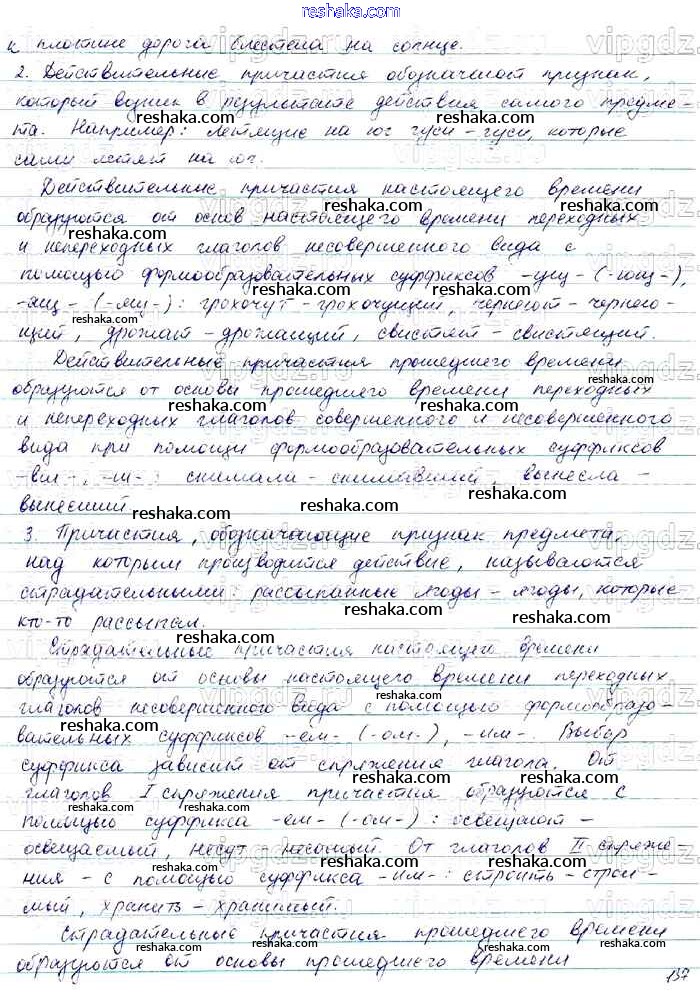 reshaka.com
к плотине дорога блестела на солнце.
2. Действительные причастия обозначают признак,
который возник в результате действия самого предме-
та. Например: летящие на юг гуси – гуси, которые
сами летят на юг.
Действительные причастия настоящего времени
образуются от основ настоящего времени переходных
и непереходных глаголов несовершенного вида с
помощью формообразовательных суффиксов -ущ- (-ющ-),
-ящ- (-ащ-): грохочут – грохочущий, чернеют – чернею-
щий, дрожат – дрожащий, свистят – свистящий.
Действительные причастия прошедшего времени
образуются от основы прошедшего времени переходных
и непереходных глаголов совершенного и несовершенного
вида при помощи формообразовательных суффиксов
-вш-, -ш-: снимали – снимавший, вынесла –
вынесший
3. Причастия, обозначающие признак предмета,
над которым производится действие, называются
страдательными: рассыпанные ягоды – ягоды, которые
кто-то рассыпал.
Страдательные причастия настоящего времени
образуются от основы настоящего времени переходных
глаголов несовершенного вида с помощью формообразо-
вательных суффиксов -ем- (-ом-), -им-. Выбор
суффикса зависит от спряжения глагола. От
глаголов I спряжения причастия образуются с
помощью суффикса -ем- (-ом-): освещают –
освещаемый, несут – несомый. От глаголов II спряже-
ния – с помощью суффикса -им-: строить – строи-
мый, хранить – хранимый.
Страдательные причастия прошедшего времени
образуются от основы прошедшего времени
137